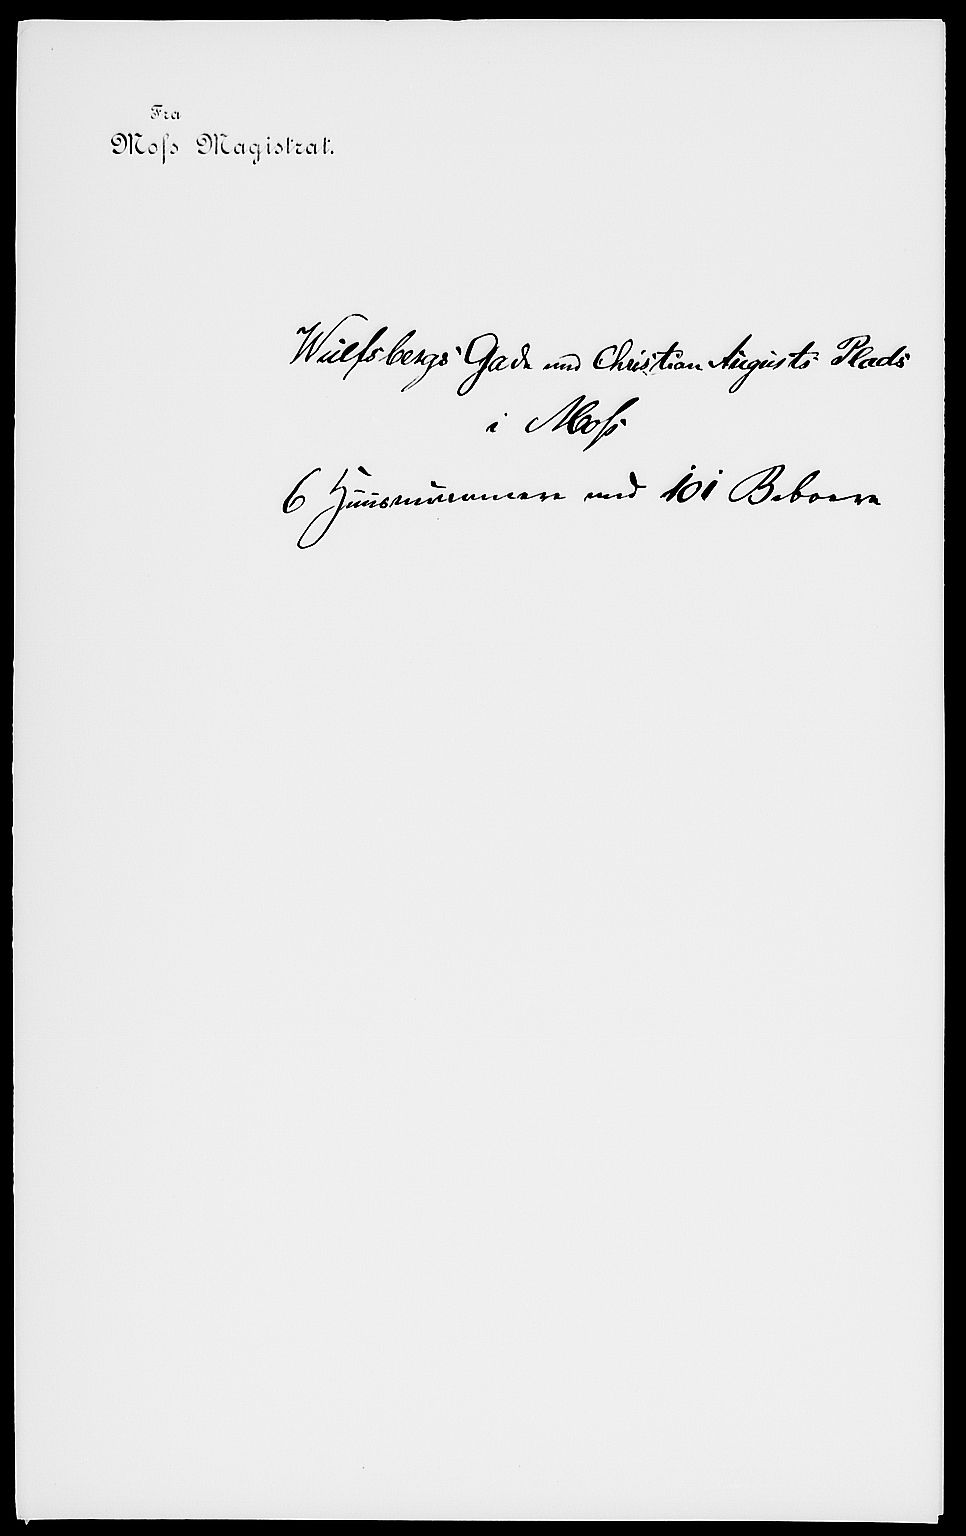 Fra
Moss Magistrat.
Wulfsbergs Gade med Christian Augusts Plads
i Moss
6 Huusnummere med 101 Beboere